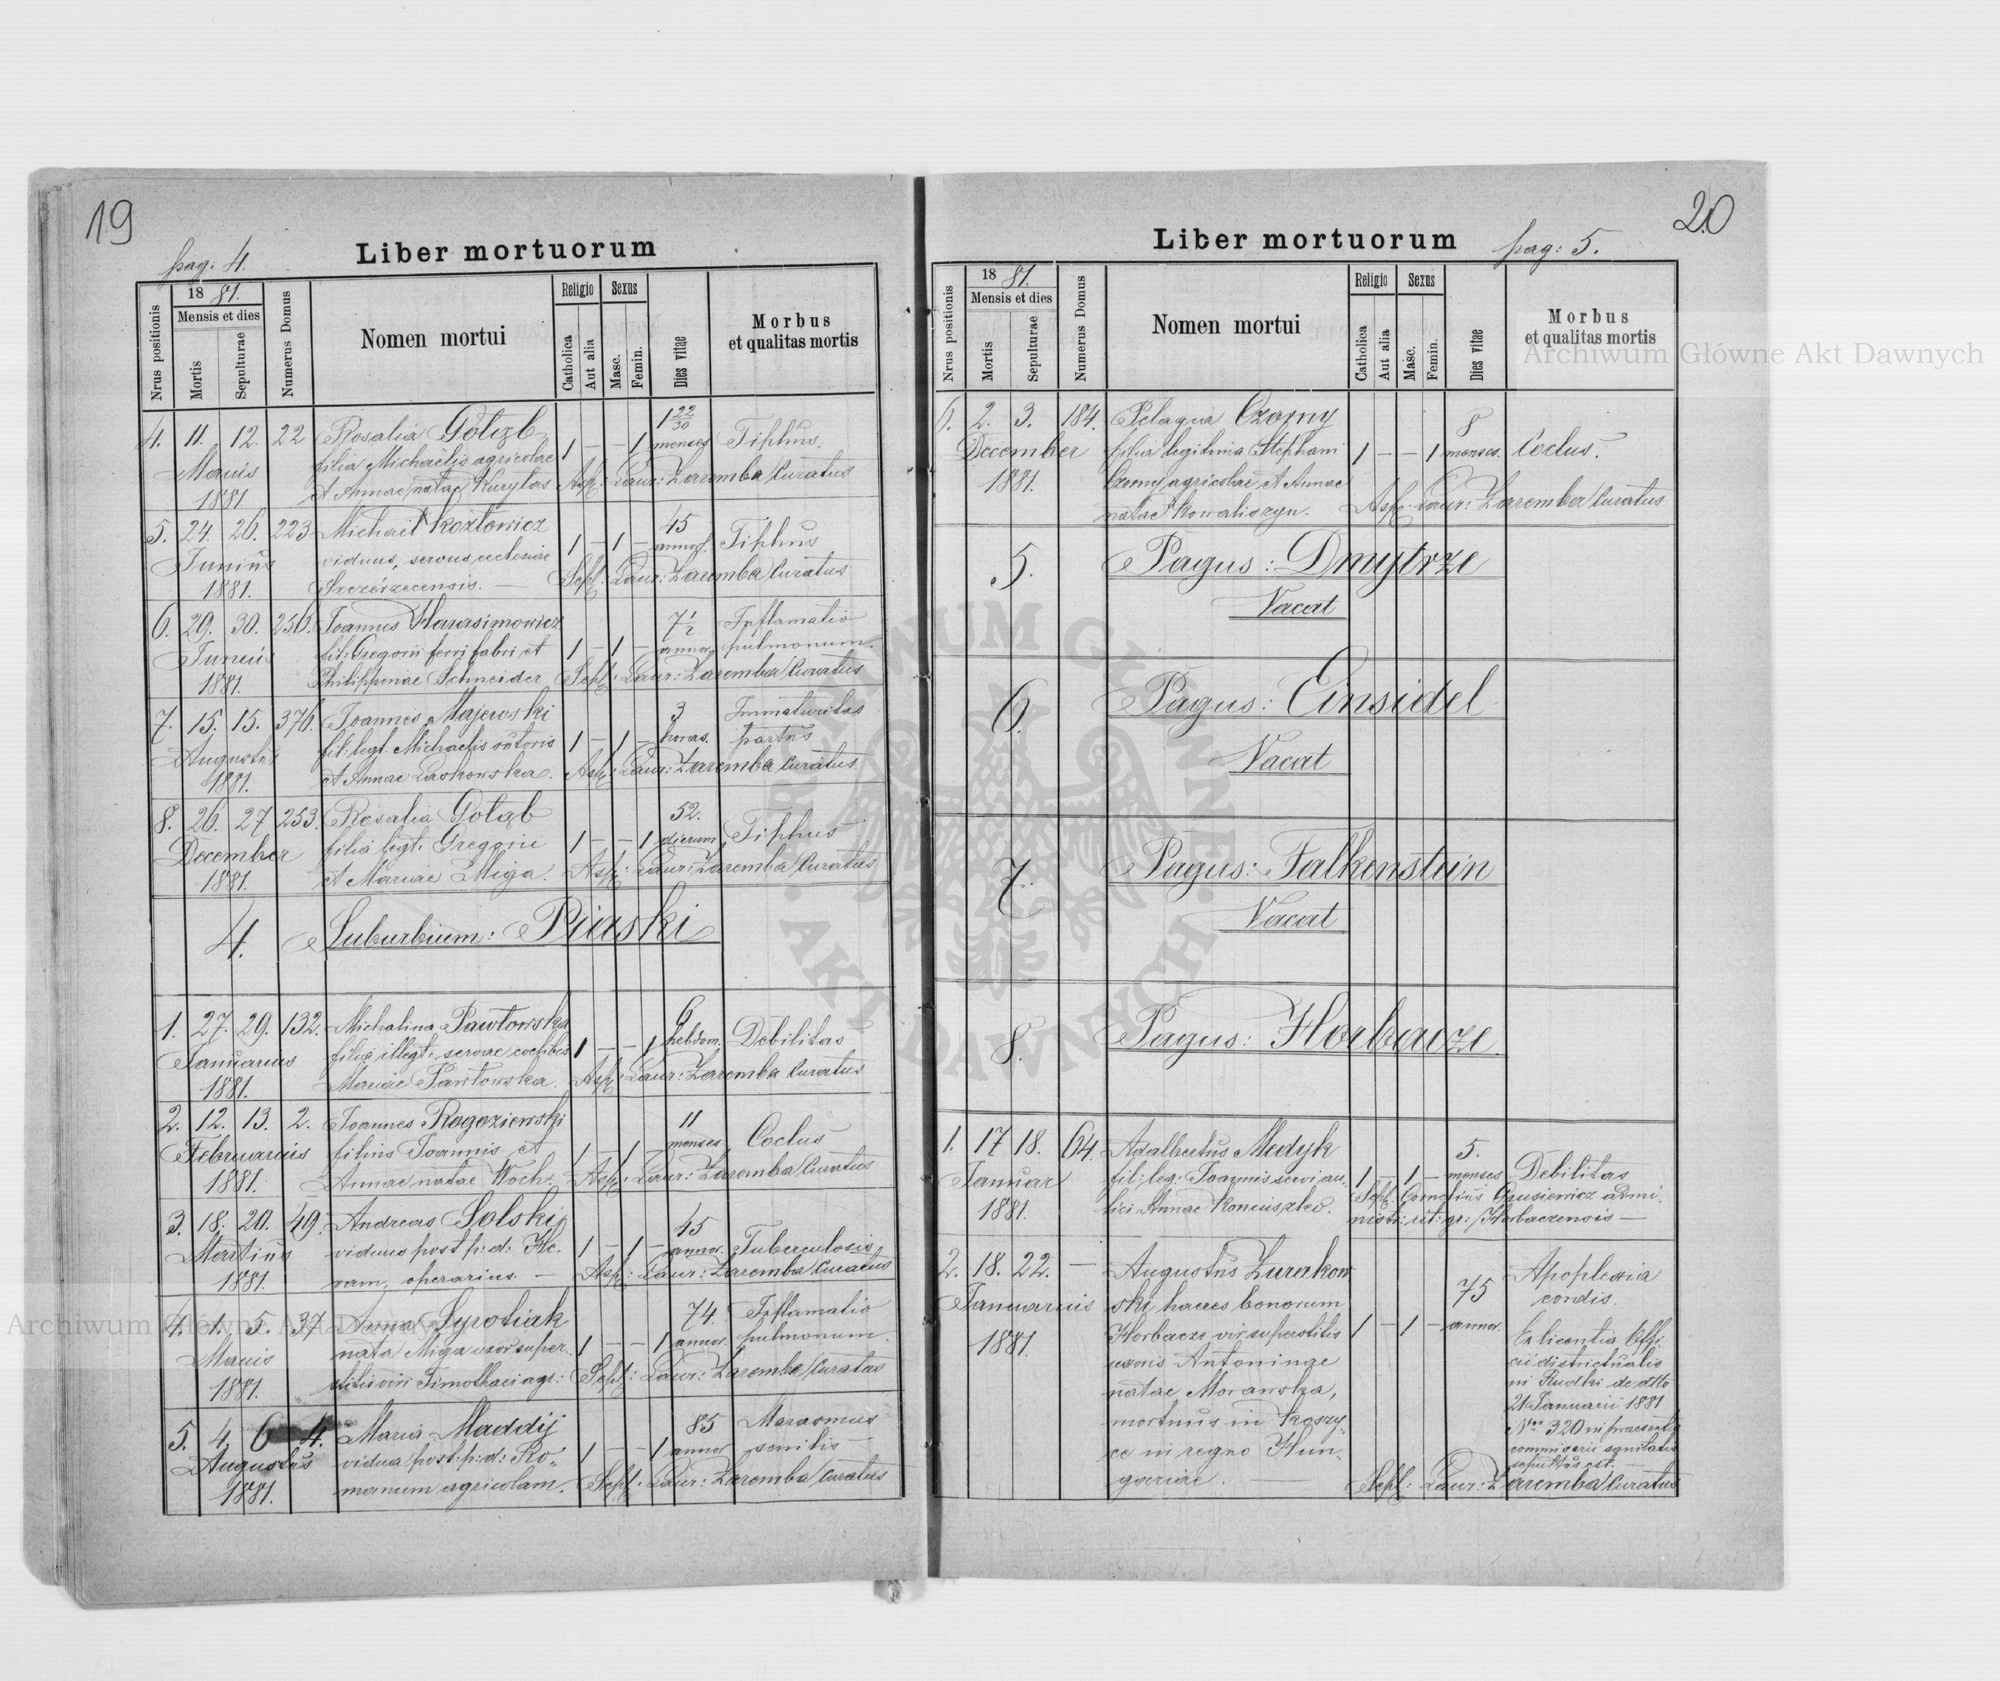 19
pag: 4.
Liber mortuorum
Nrus positionis
18 81.
Mensis et dies
Mortis
Sepulturae
Numerus Domus
Nomen mortui
Religio
Catholica
Aut alia
Sexus
Masc.
Femin.
Dies vitae
Morbus
et qualitas mortis
4. 11. 12. 22 Rosalia Gołąb 1 22/30
filia Michaëlis agricolae 1 – – 1 menses Tiphus.
Maius et Annae natae Kurylas Asp: Laur: Zaremba Curatus
1881
5. 24. 26. 223 Michael Kozłowicz 45
viduus, servus ecclesiae 1 – 1 – annor. Tiphus
Junius Sepl: Laur: Zaremba Curatus
1881.
6. 29. 30. 256. Joannes Harasimowicz 7 1/2 Inflamatio
Junius fil: Gregorii ferri fabri et 1 – 1 – annor. pulmonum.
1881. Philippinae Schneider Sepl: Laur: Zaremba Curatus
7. 15. 15. 376. Joannes Majewski 3 Immaturitas
Augustus fil: legt. Michaelis sutoris 1 – 1 – horas. partus
1881. et Annae Laskowska. Asp: Laur: Zaremba Curatus
8. 26. 27 253. Rosalia Gołąb 52.
December filia legt. Gregorii 1 – – 1 dierum Tiphus
1881. et Mariae Miga. Asp: Laur: Zaremba Curatus
4. Suburbium: Piaski
1. 27. 29. 132. Michalina Pawłowska 6
Januarius filia illegt. servae coelibis 1 – – 1 hebdom. Debilitas
1881. Mariae Pawłowska. Asp: Laur: Zaremba Curatus
2. 12. 13. 2. Joannes Rogoziewski 11
Februarius filius Joannis et 1 – 1 – menses Coclus
1881. Annae natae Woch. Asp: Laur: Zaremba Curatus
3. 18. 20. 49. Andreas Solski 45
Martius viduus post p: d: 1 – 1 – annor. Tuberculosis
1881. operarius. – Asp: Laur: Zaremba Curatus
4. 1. 5. 37 Anna Syrotiak 74. Inflamatio
Maius nata Miga uxor super 1 – – 1 annor. pulmonum.
1881. stitis viri Timothaei agr: Sepl: Laur: Zaremba Curatus
5. 4. 6 4. Maria Maddij 85 Marasmus
Augustus vidua post: p: d: Ro„ 1 – – 1 annor senilis –
1881. manum agricolam. Sepl: Laur: Zaremba Curatus
20
Liber mortuorum
pag: 5.
Nrus positionis
18 81.
Mensis et dies
Mortis
Sepulturae
Numerus Domus
Nomen mortui
Religio
Catholica
Aut alia
Sexus
Masc.
Femin.
Dies vitae
Morbus
et qualitas mortis
6. 2. 3. 184. Pelagia Czorny 8
December filia legitima Stephani 1 – – 1 menses. Coclus.
1881. Czorny agricolae et Annae
natae Kowaliszyn. Asp: Laur: Zaremba Curatus
5. Pagus: Dmytrze
Vacat
6. Pagus: Einsidel
Vacat
7. Pagus: Falkenstein
Vacat
8. Pagus: Horbacze.
1. 17 18. 64. Adalbertus Medyk 5.
Januar fil: leg: Joannis servi au„ 1 – 1 – menses Debilitas
1881. lici Annae Koniuszko. Sepl. Cornelius Grusiewicz admi„
nistr: rit: gr: Horbaczensis –
2. 18. 22. – Augustus Zurakow Apoplexia
Januarius ski haeres bonorum 75 cordis.
1881. Horbacze vir superstitis 1 – 1 – annor. Ex licentia Offi„
uxoris Antoninae cii districtualis
natae Morawska, in Rudki de dtto
mortuus in Koszy„ 21 Januarii 1881
ce in regno Hun„ Nro 320 in praesentia
gariae. – commisarii sanitatis
sepultus est. –
Sepl: Laur: Zaremba Curatus
Archiwum Główne Akt Dawnych
Archiwum Główne Akt Dawnych
ARCHIWUM GŁÓWNE AKT DAWNYCH